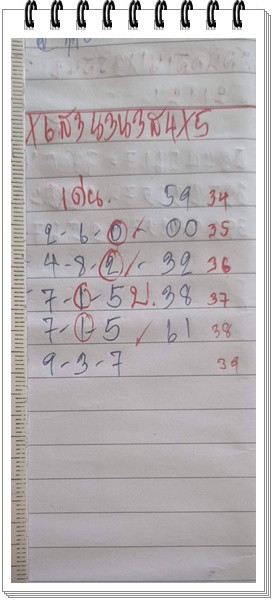 X6ส3น3น3ส4X5
เด่น. 59 34
2-6-0/- 00 35
4-8-2/- 32 36
7-1-5 บ. 38 37
7-1-5 / 61 38
9-3-7 39